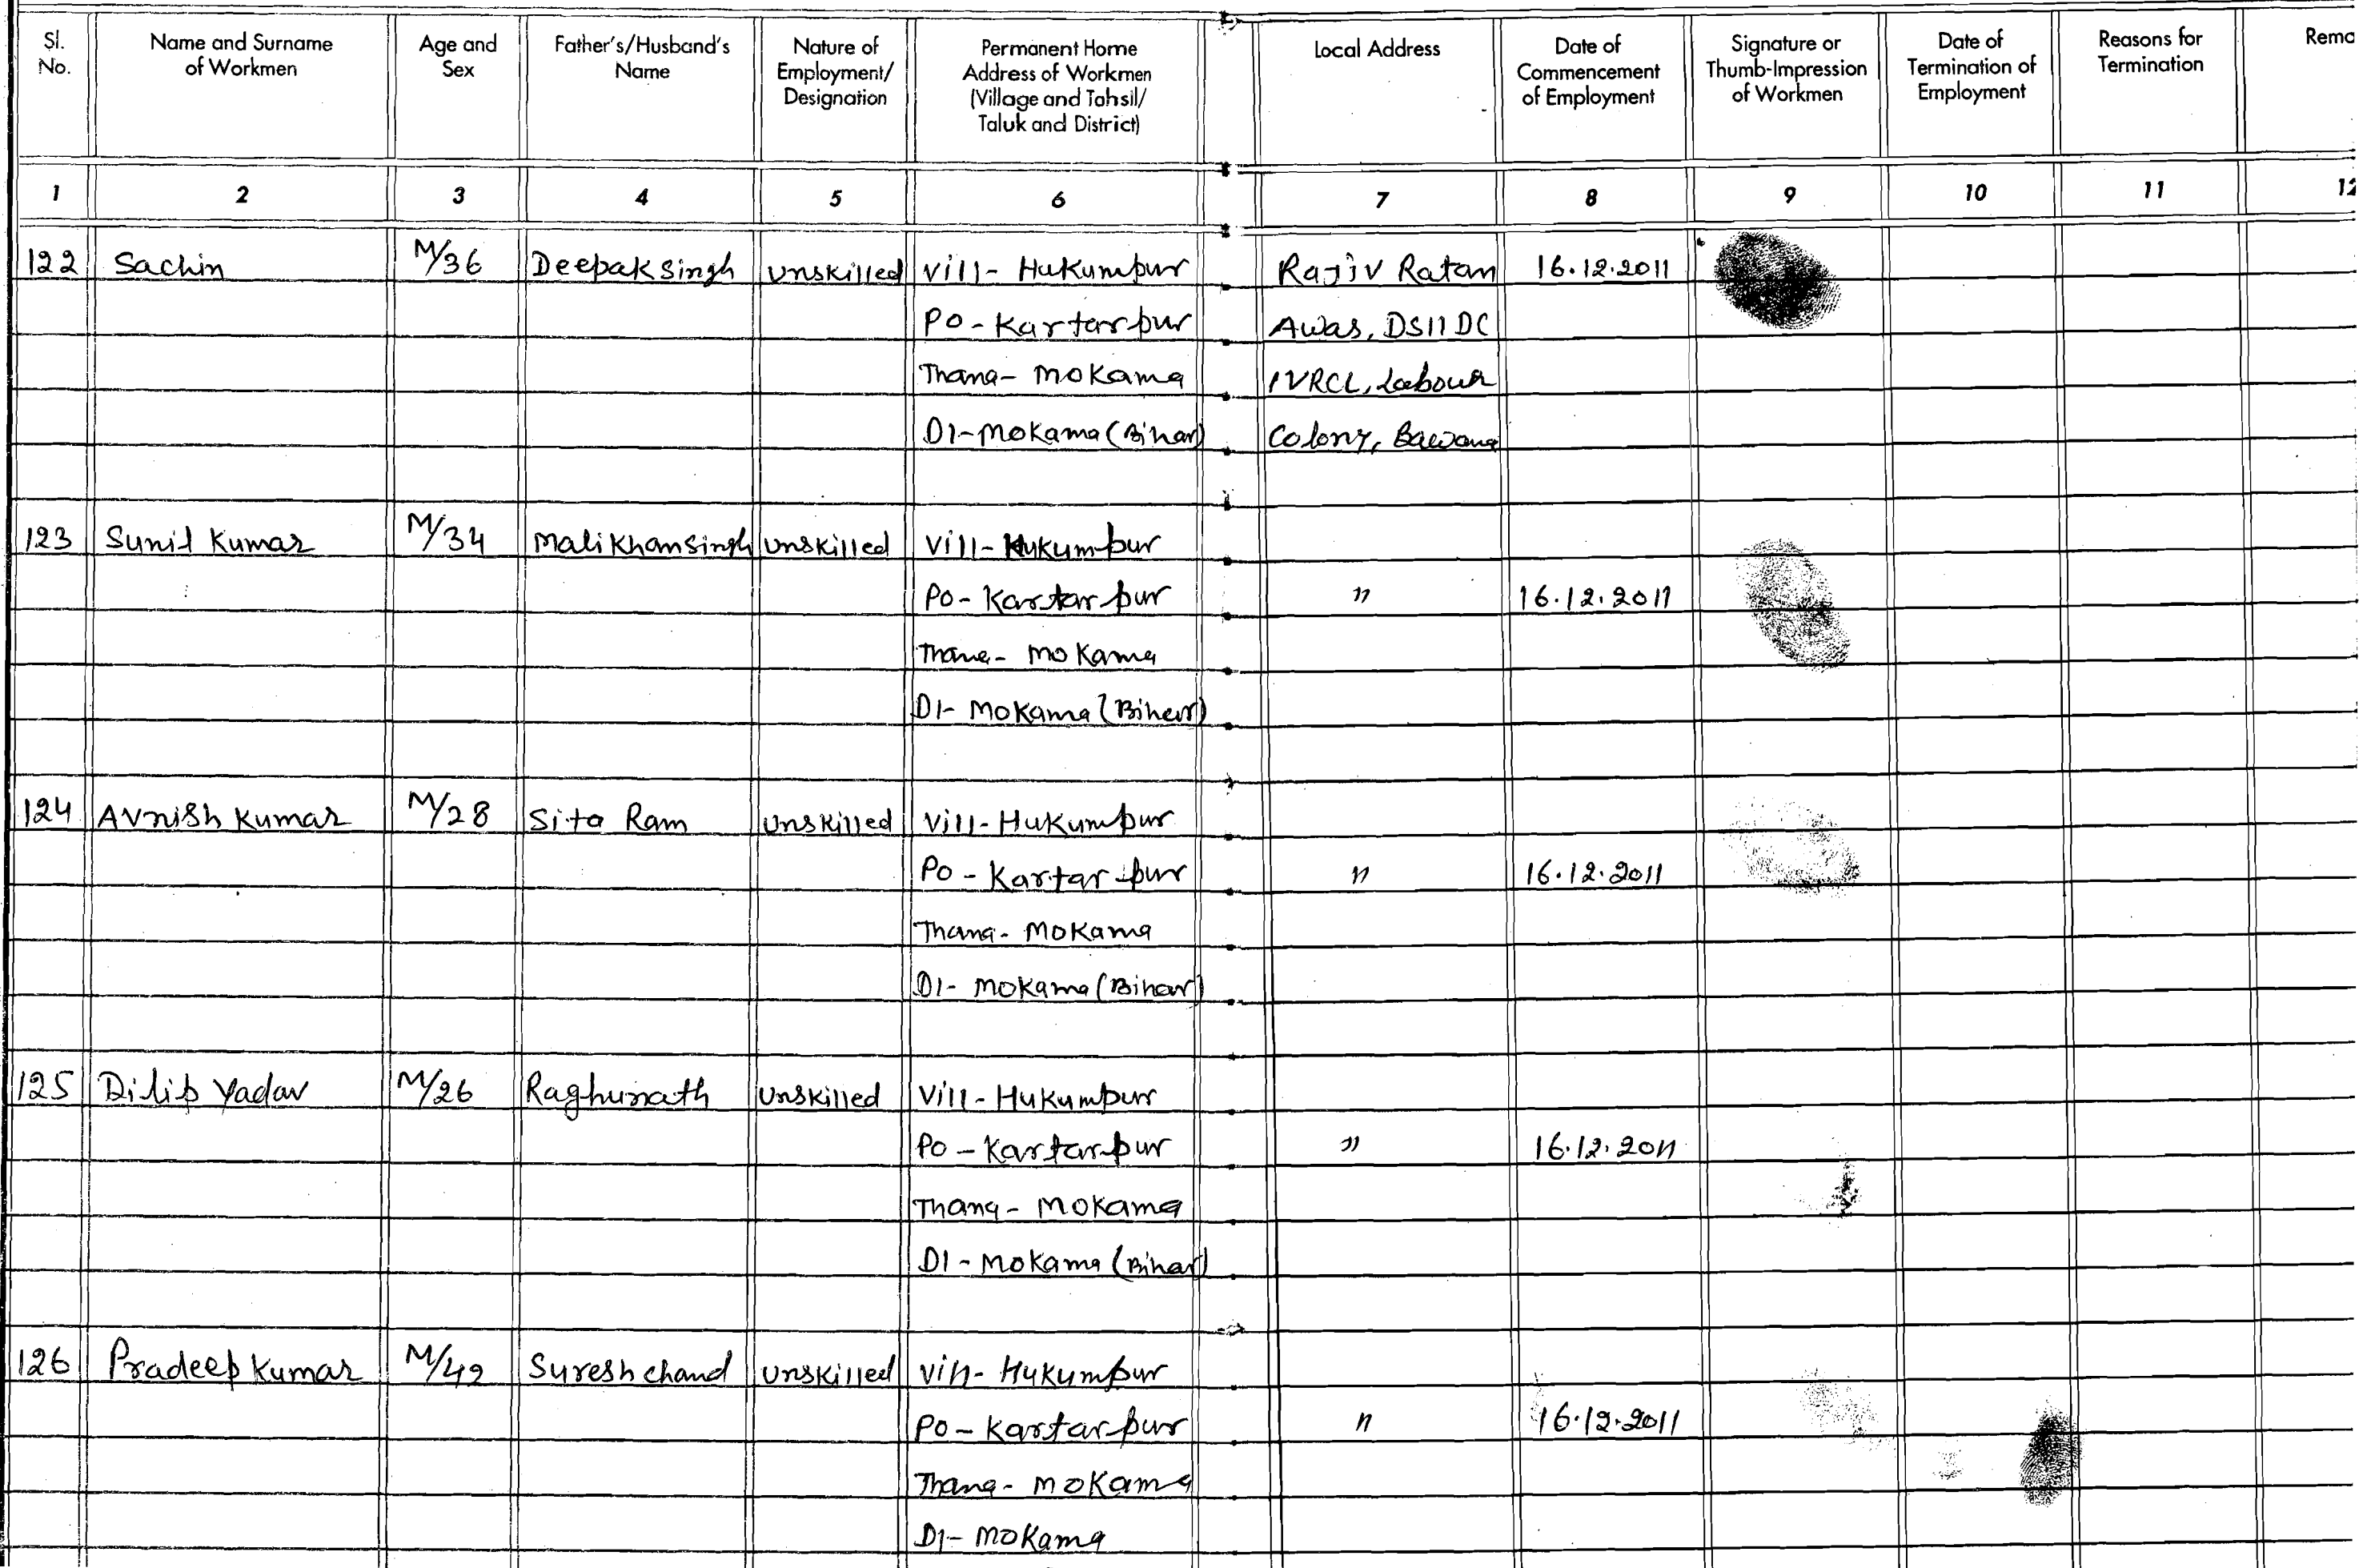 Sl. No.
Name and Surname of Workmen
Age and Sex
Father's/Husband's Name
Nature of Employment/ Designation
Permanent Home Address of Workmen (Village and Tahsil/ Taluk and District)
Local Address
Date of Commencement of Employment
Signature or Thumb-Impression of Workmen
Date of Termination of Employment
Reasons for Termination
Rema
1 2 3 4 5 6 7 8 9 10 11 12
122 Sachin M/36 Deepak Singh Unskilled Vill- Hukumpur Rajiv Ratan 16.12.2011
PO - Kartarpur Awas, DSIIDC
Thana- Mokama IVRCL, Labour
DI- Mokama (Bihar) Colony, Bawana
123 Sunil Kumar M/34 Malikhan Singh Unskilled Vill- Hukumpur
PO- Kartarpur " 16.12.2011
Thana- Mokama
DI- Mokama (Bihar)
124 Avnish Kumar M/28 Sita Ram Unskilled Vill- Hukumpur
PO - Kartarpur " 16.12.2011
Thana- Mokama
DI- Mokama (Bihar)
125 Dilip Yadav M/26 Raghunath Unskilled Vill- Hukumpur
PO - Kartarpur " 16.12.2011
Thana- Mokama
DI - Mokama (Bihar)
126 Pradeep Kumar M/42 Suresh chand Unskilled Vill- Hukumpur
PO - Kartarpur " 16.12.2011
Thana- Mokama
DI- Mokama